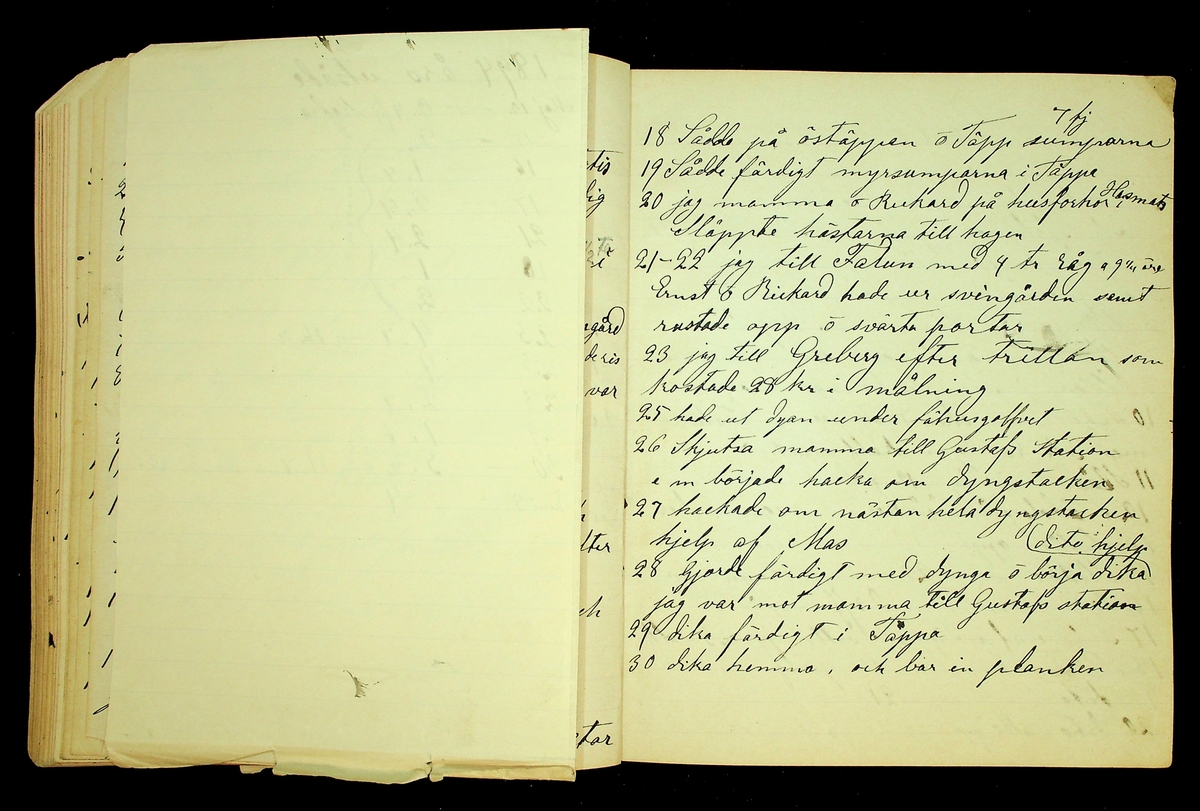 7 fj
18 Sådde på östäppan ö Täpp sumparna
19 Sådde färdigt myrsumparna i Täppa
20 jag mamma ö Rickard på husförhör Hasmats
Släppte hästarna till hagen
21-22 jag till Falun med 4 tr Råg a 9 öre
Ernst ö Rickard hade ur svingården samt
rustade opp ö svärta portar
23 jag till Greberg efter trillan som
kostade 28 kr i målning
25 hade ut dyan under fähusgolfvet
26 Skjutsa mamma till Gustafs Station
e m började hacka om dyngstacken
27 hackade om nästan hela dyngstacken
hjelp af Mas (dito hjelp
28 Gjorde färdigt med dynga ö börja dika
jag var mot mamma till Gustafs station
29 dika färdigt i Täppa
30 dika hemma, och bar in planken